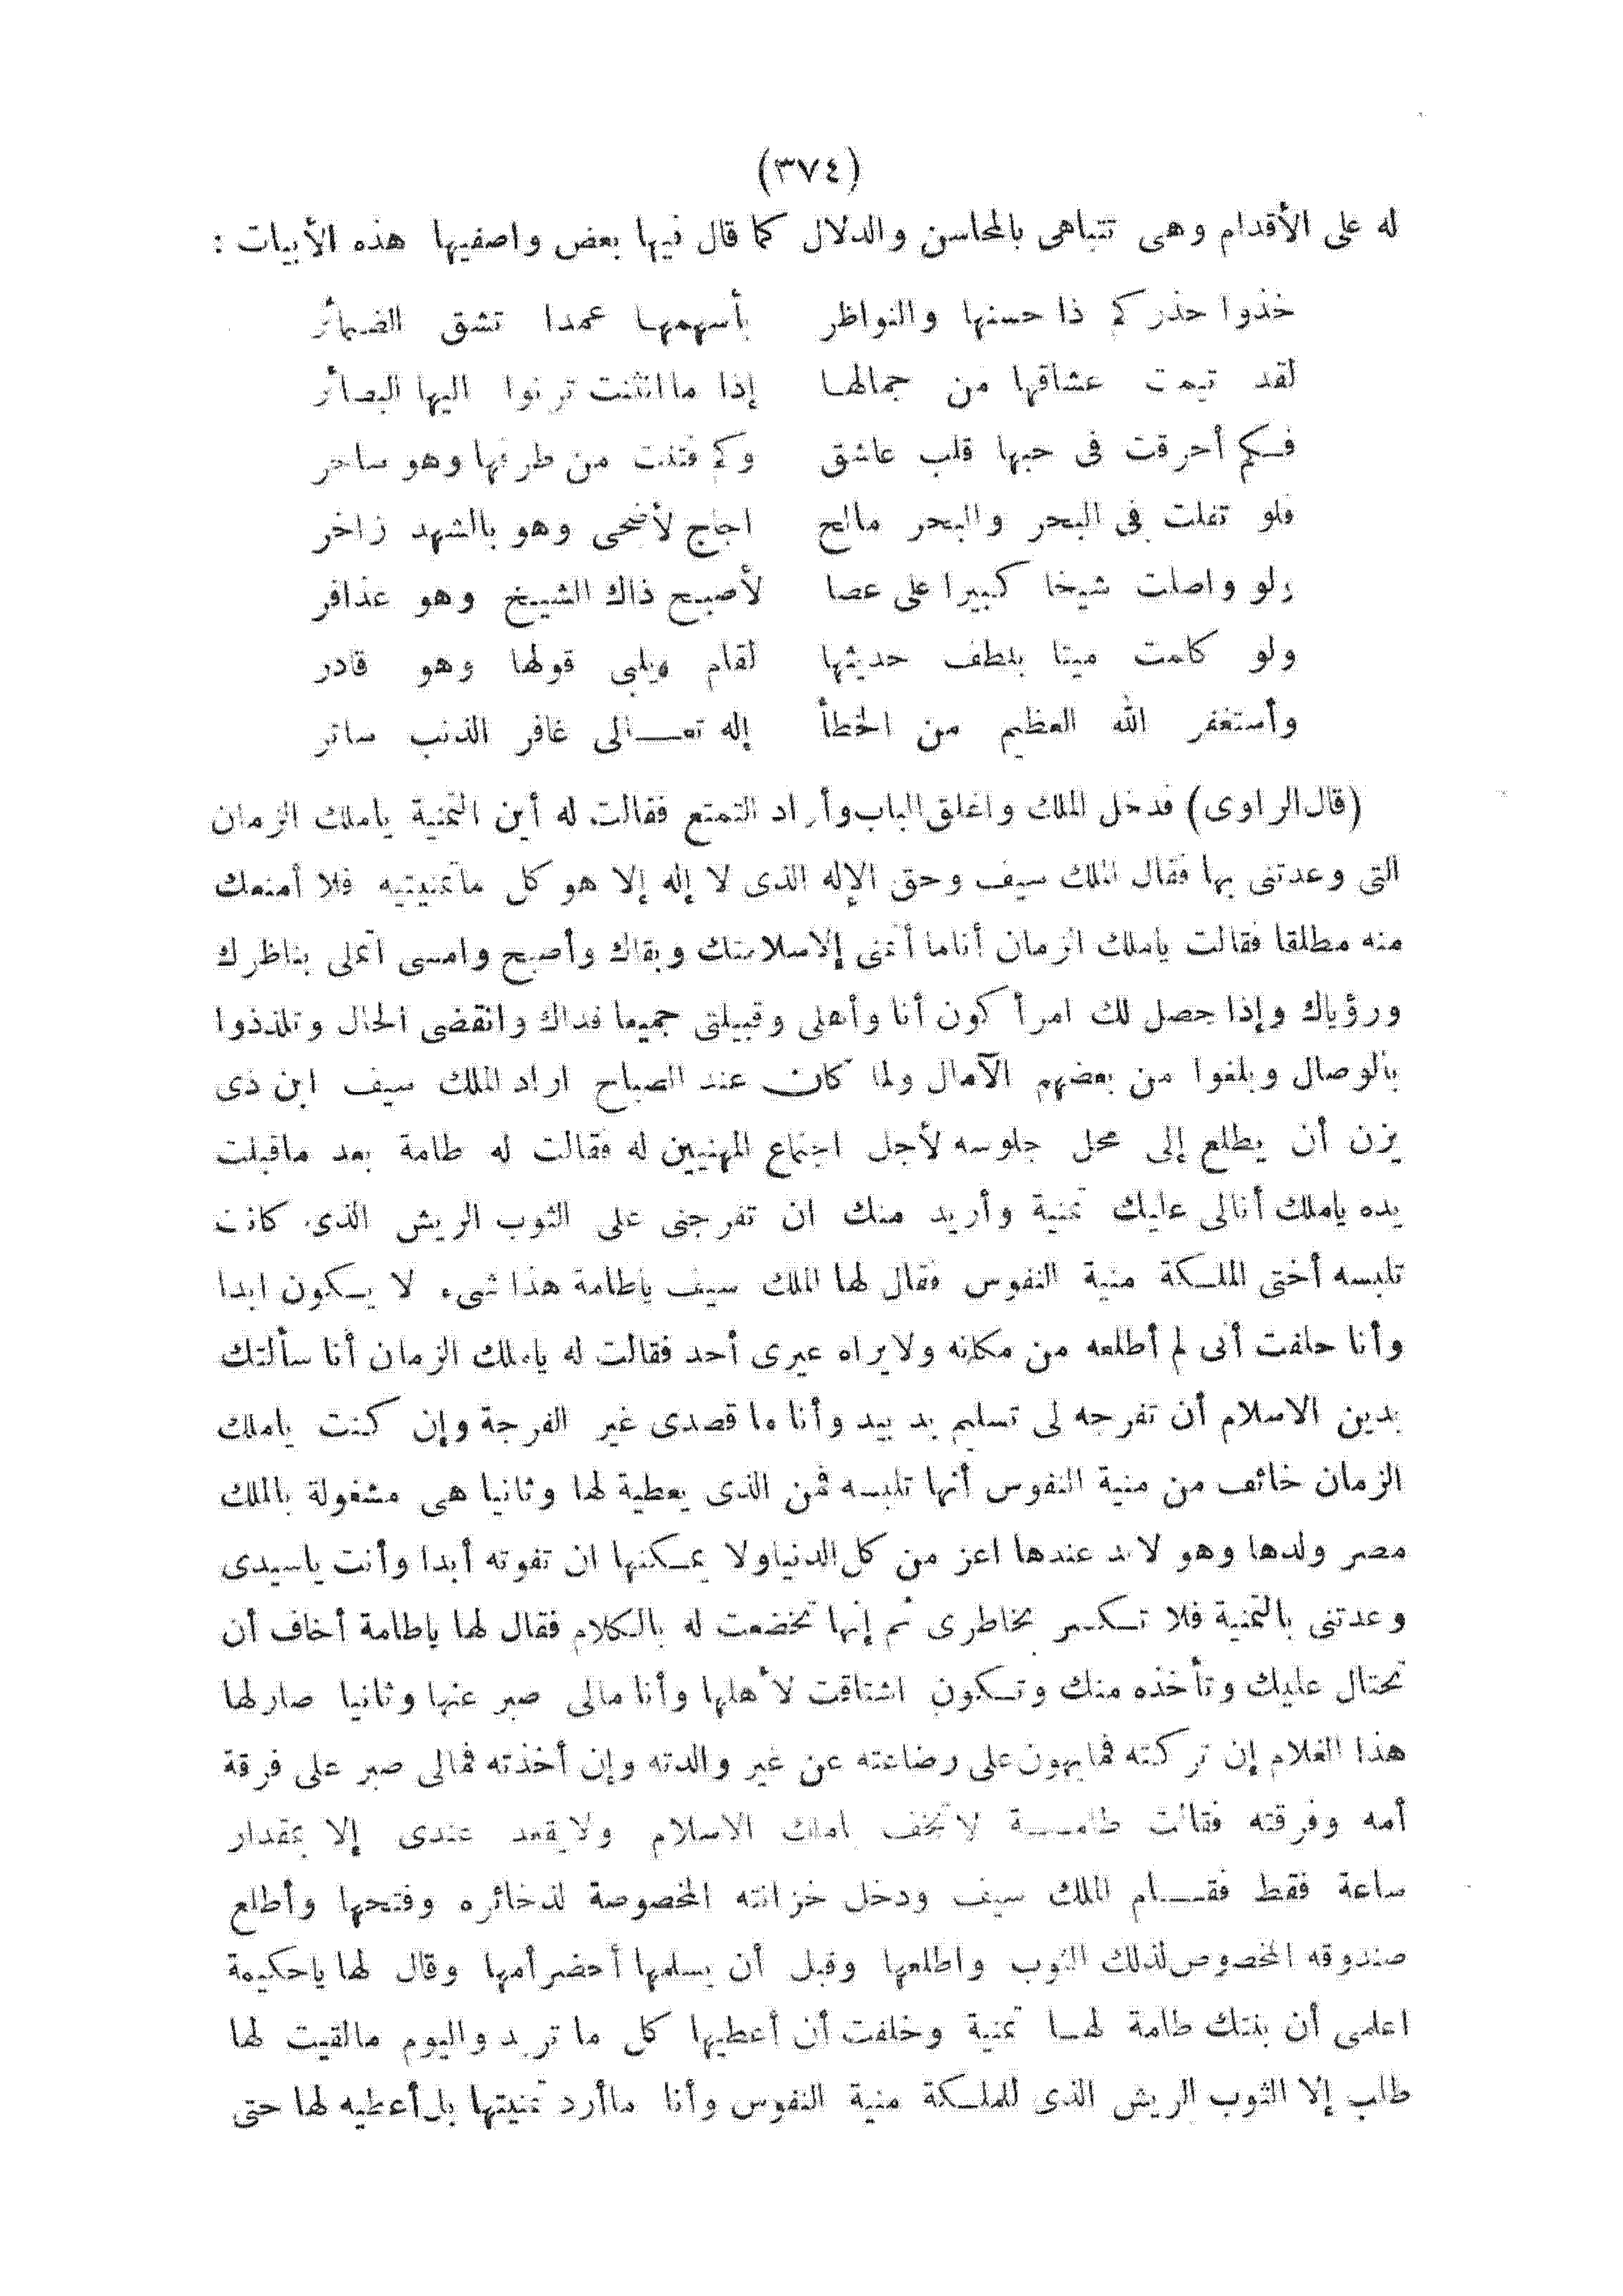 (٣٧٤)
له على الأقدام وهى تتباهى بالمحاسن والدلال كما قال فيها بعض واصفيها هذه الأبيات :
خذوا حذركم ذا حسنها والنواظر بأسهمها عمدا تشق الضمائر
لقد تيمت عشاقها من جمالها إذا ما انثنت ترنوا اليها البصائر
فكم أحرقت فى حبها قلب عاشق وكم فتنت من طرفها وهو ساحر
فلو تفلت فى البحر والبحر مالح اجاج لأضحى وهو بالشهد زاخر
ولو واصلت شيخا كبيرا على عصا لأصبح ذاك الشيخ وهو عذافر
ولو كلمت ميتا بلطف حديثها لقام ويلبى قولها وهو قادر
وأستغفر الله العظيم من الخطأ إله تعالى غافر الذنب ساتر
(قال الراوى) فدخل الملك واغلق الباب وأراد التمتع فقالت له أين التمنية ياملك الزمان
التى وعدتنى بها فقال الملك سيف وحق الإله الذى لا إله إلا هو كل ماتمنيتيه فلا أمنعك
منه مطلقا فقالت ياملك الزمان أناما أتمنى إلاسلامتك وبقاك وأصبح وامسى اتملى بناظرك
ورؤياك وإذا حصل لك امرأ كون أنا وأهلى وقبيلتى جميعا فداك وانقضى الحال وتلذذوا
بالوصال وبلغوا من بعضهم الآمال ولما كان عند الصباح اراد الملك سيف ابن ذى
يزن أن يطلع إلى محل جلوسه لأجل اجتماع المهنيين له فقالت له طامة بعد ماقبلت
يده ياملك أنالى عليك تمنية وأريد منك ان تفرجنى على الثوب الريش الذى كانت
تلبسه أختى الملكة منية النفوس فقال لها الملك سيف ياطامة هذا شىء لا يكون ابدا
وأنا حلفت أنى لم أطلعه من مكانه ولايراه عيرى أحد فقالت له ياملك الزمان أنا سألتك
بدين الاسلام أن تفرحه لى تسليم يد بيد وأنا ما قصدى غير الفرجة وإن كنت ياملك
الزمان خائف من منية النفوس أنها تلبسه فمن الذى يعطية لها وثانيا هى مشغولة بالملك
مصر ولدها وهو لابد عندها اعز من كل الدنياولا يمكنها ان تفوته أبدا وأنت ياسيدى
وعدتنى بالتمنية فلا تكسر بخاطرى ثم إنها تخضعت له بالكلام فقال لها ياطامة أخاف أن
تحتال عليك وتأخذه منك وتكون اشتاقت لأهلها وأنا مالى صبر عنها وثانيا صارلها
هذا الغلام إن تركته فمايهون على رضاعته عن غير والدته وإن أخذته فمالى صبر على فرقة
أمه وفرقته فقالت طامة لاتخف ياملك الاسلام ولايقعد عندى إلا بمقدار
ساعة فقط فقام الملك سيف ودخل خزانته المخصوصة لذخائره وفتحها وأطلع
صندوقه المخصوص لذلك الثوب واطلعها وقبل أن يسلمها أحضرأمها وقال لها ياحكيمة
اعلمى أن بنتك طامة لها تمنية وخلفت أن أعطيها كل ما تريد واليوم مالقيت لها
طلب إلا الثوب الريش الذى للملكة منية النفوس وأنا ماأرد تمنيتها بل أعطيه لها حتى